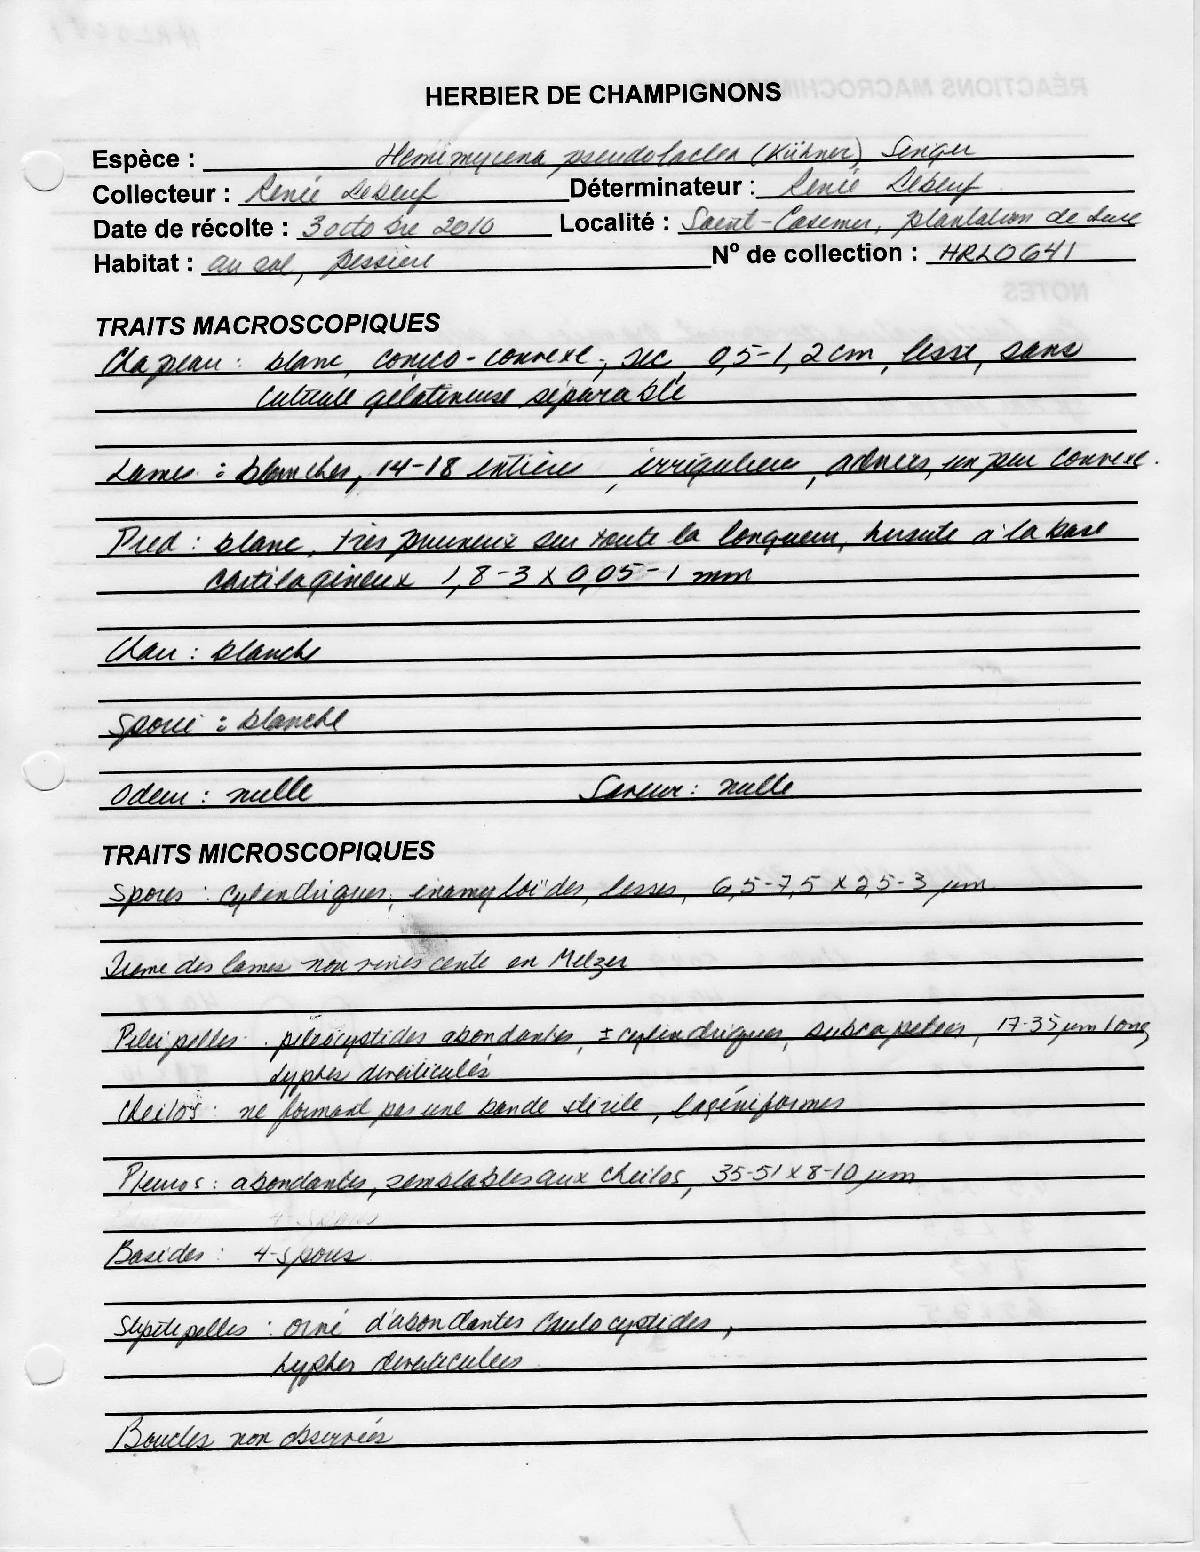 HERBIER DE CHAMPIGNONS
Espèce : Hemimycena pseudolactea (Kühner) Singer
Collecteur : Renée Lebeuf Déterminateur : Renée Lebeuf
Date de récolte : 3 octobre 2010 Localité : Saint-Casimir, plantation de
Habitat : au sol, pessière No de collection : HRL0641
TRAITS MACROSCOPIQUES
Chapeau : blanc, conico-convexe, sec, 0,5-1,2 cm, lisse, sans
cuticule gélatineuse séparable
Lames : blanches, 14-18 entières, irrégulières, adnées, un peu convexe.
Pied : blanc, très pruineux sur toute la longueur, hirsute à la base
cartilagineux 1,8-3 x 0,05-1 mm
Chair : blanche
Sporée : blanche
Odeur : nulle Saveur : nulle
TRAITS MICROSCOPIQUES
Spores : cylindriques, inamyloïdes, lisses, 6,5-7,5 x 2,5-3 µm
Trame des lames non vinescente en Melzer
Pileipellis : piléocystides abondantes, ± cylindriques, subcapitées, 17-35 µm long
hyphes diverticulés
Cheilos : ne formant pas une bande stérile, lagéniformes
Pleuros : abondantes, semblables aux cheilos, 35-51 x 8-10 µm
Basides : 4-spores
Stipitipellis : orné d'abondantes caulocystides,
hyphes diverticulées
Boucles non observées